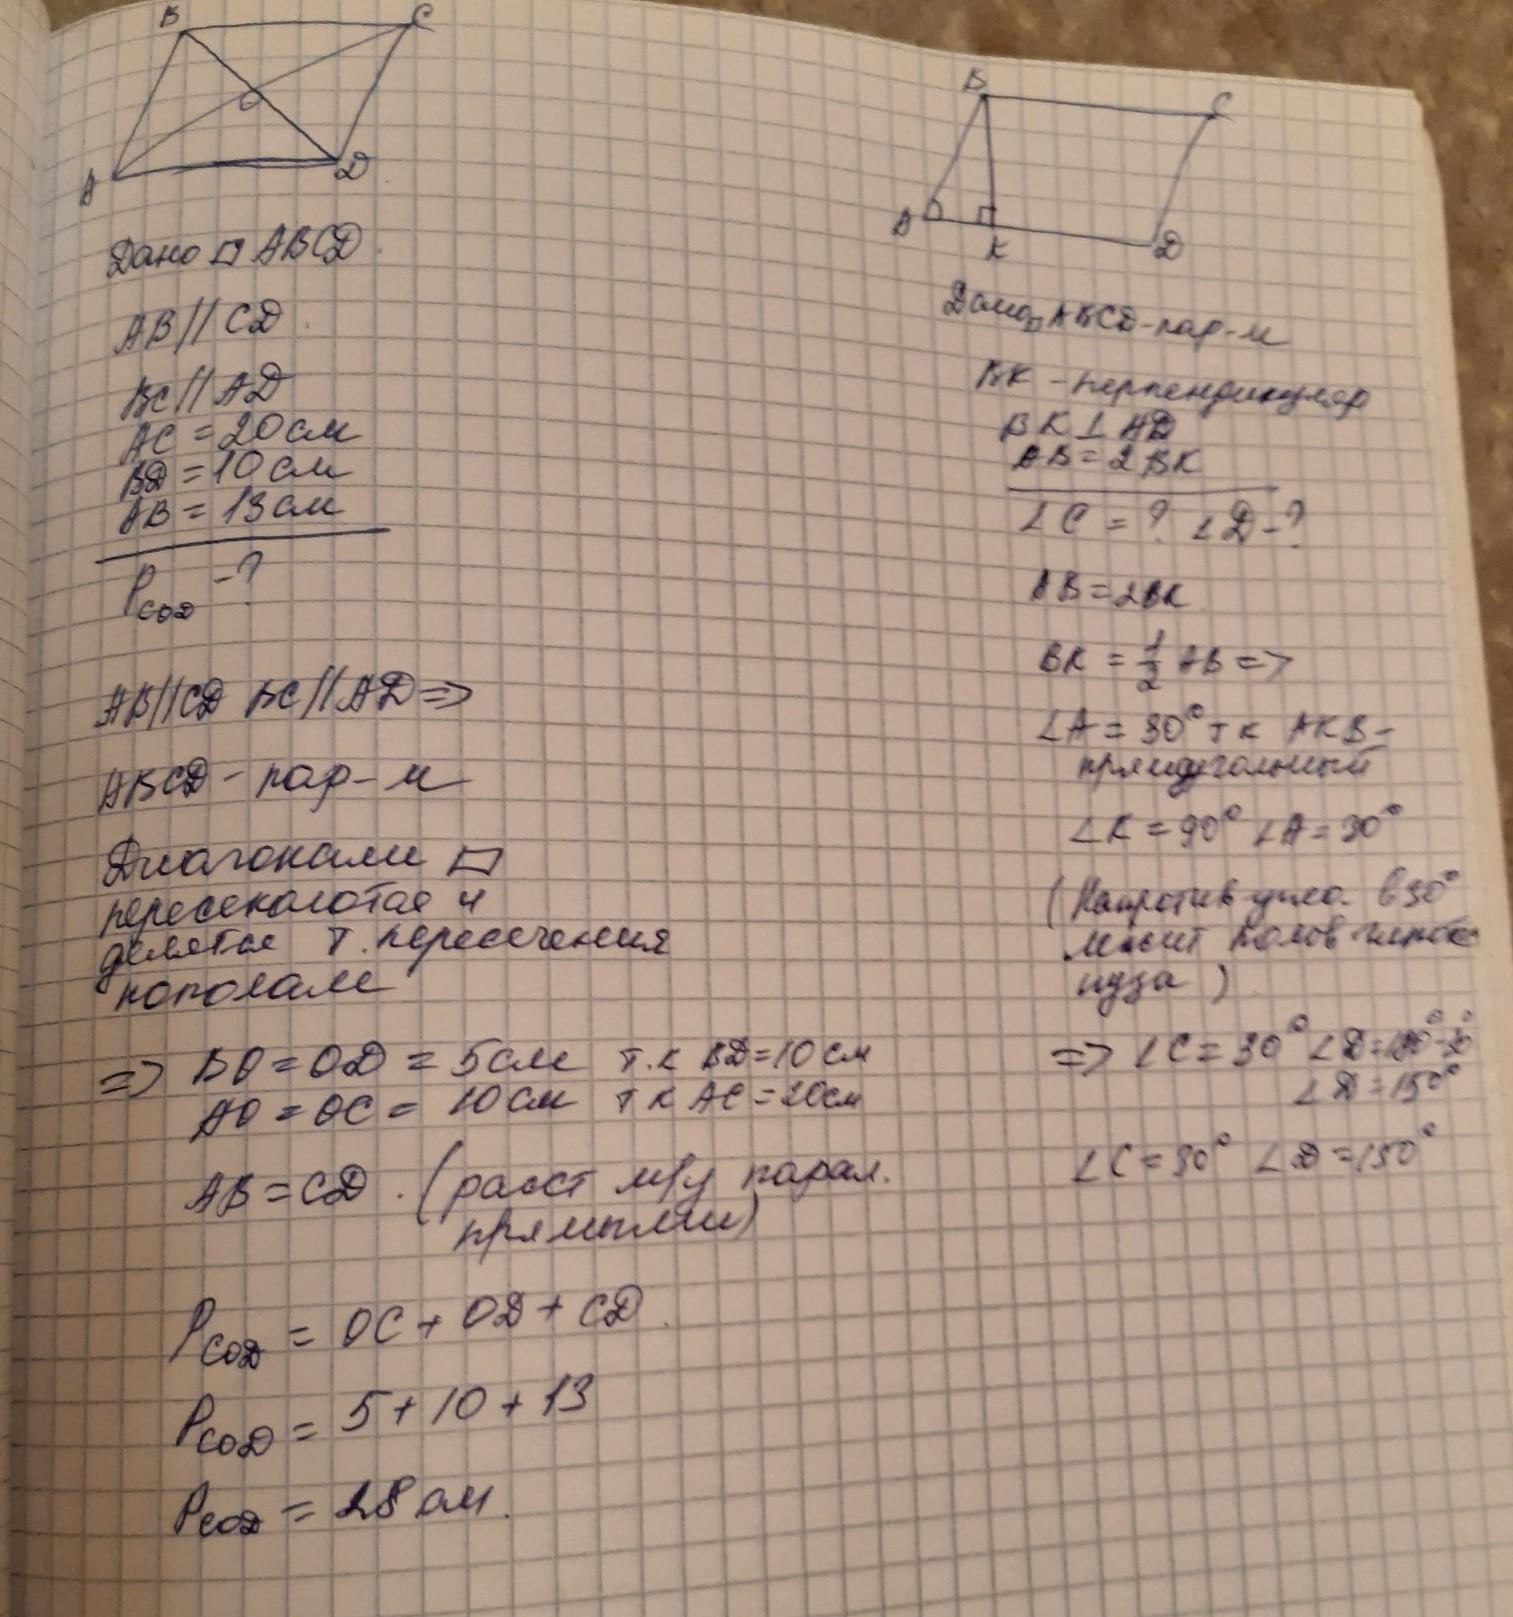 B
C
O
A
D
Дано ▱ ABCD
AB // CD
BC // AD
AC = 20 см
BD = 10 см
AB = 13 см
P_COD - ?
AB//CD BC//AD =>
ABCD - пар-м
Диагонали ▱
пересекаются и
делятся т. пересечения
пополам
=> BO = OD = 5 см т.к BD = 10 см
AO = OC = 10 см т к AC = 20 см
AB = CD. (расст м/у парал.
прямыми)
P_COD = OC + OD + CD
P_COD = 5 + 10 + 13
P_COD = 28 см.
B
C
A
K
D
Дано ▱ ABCD - пар-м
BK - перпендикуляр
BK ⊥ AD
AB = 2 BK
∠C = ? ∠D - ?
AB = 2BK
BK = 1/2 AB =>
∠A = 30° т к AKB -
прямоугольный
∠K = 90° ∠A = 30°
(Напротив угла в 30°
лежит полов гипоте
нуза)
=> ∠C = 30° ∠D = 180° - 30°
∠D = 150°
∠C = 30° ∠D = 150°